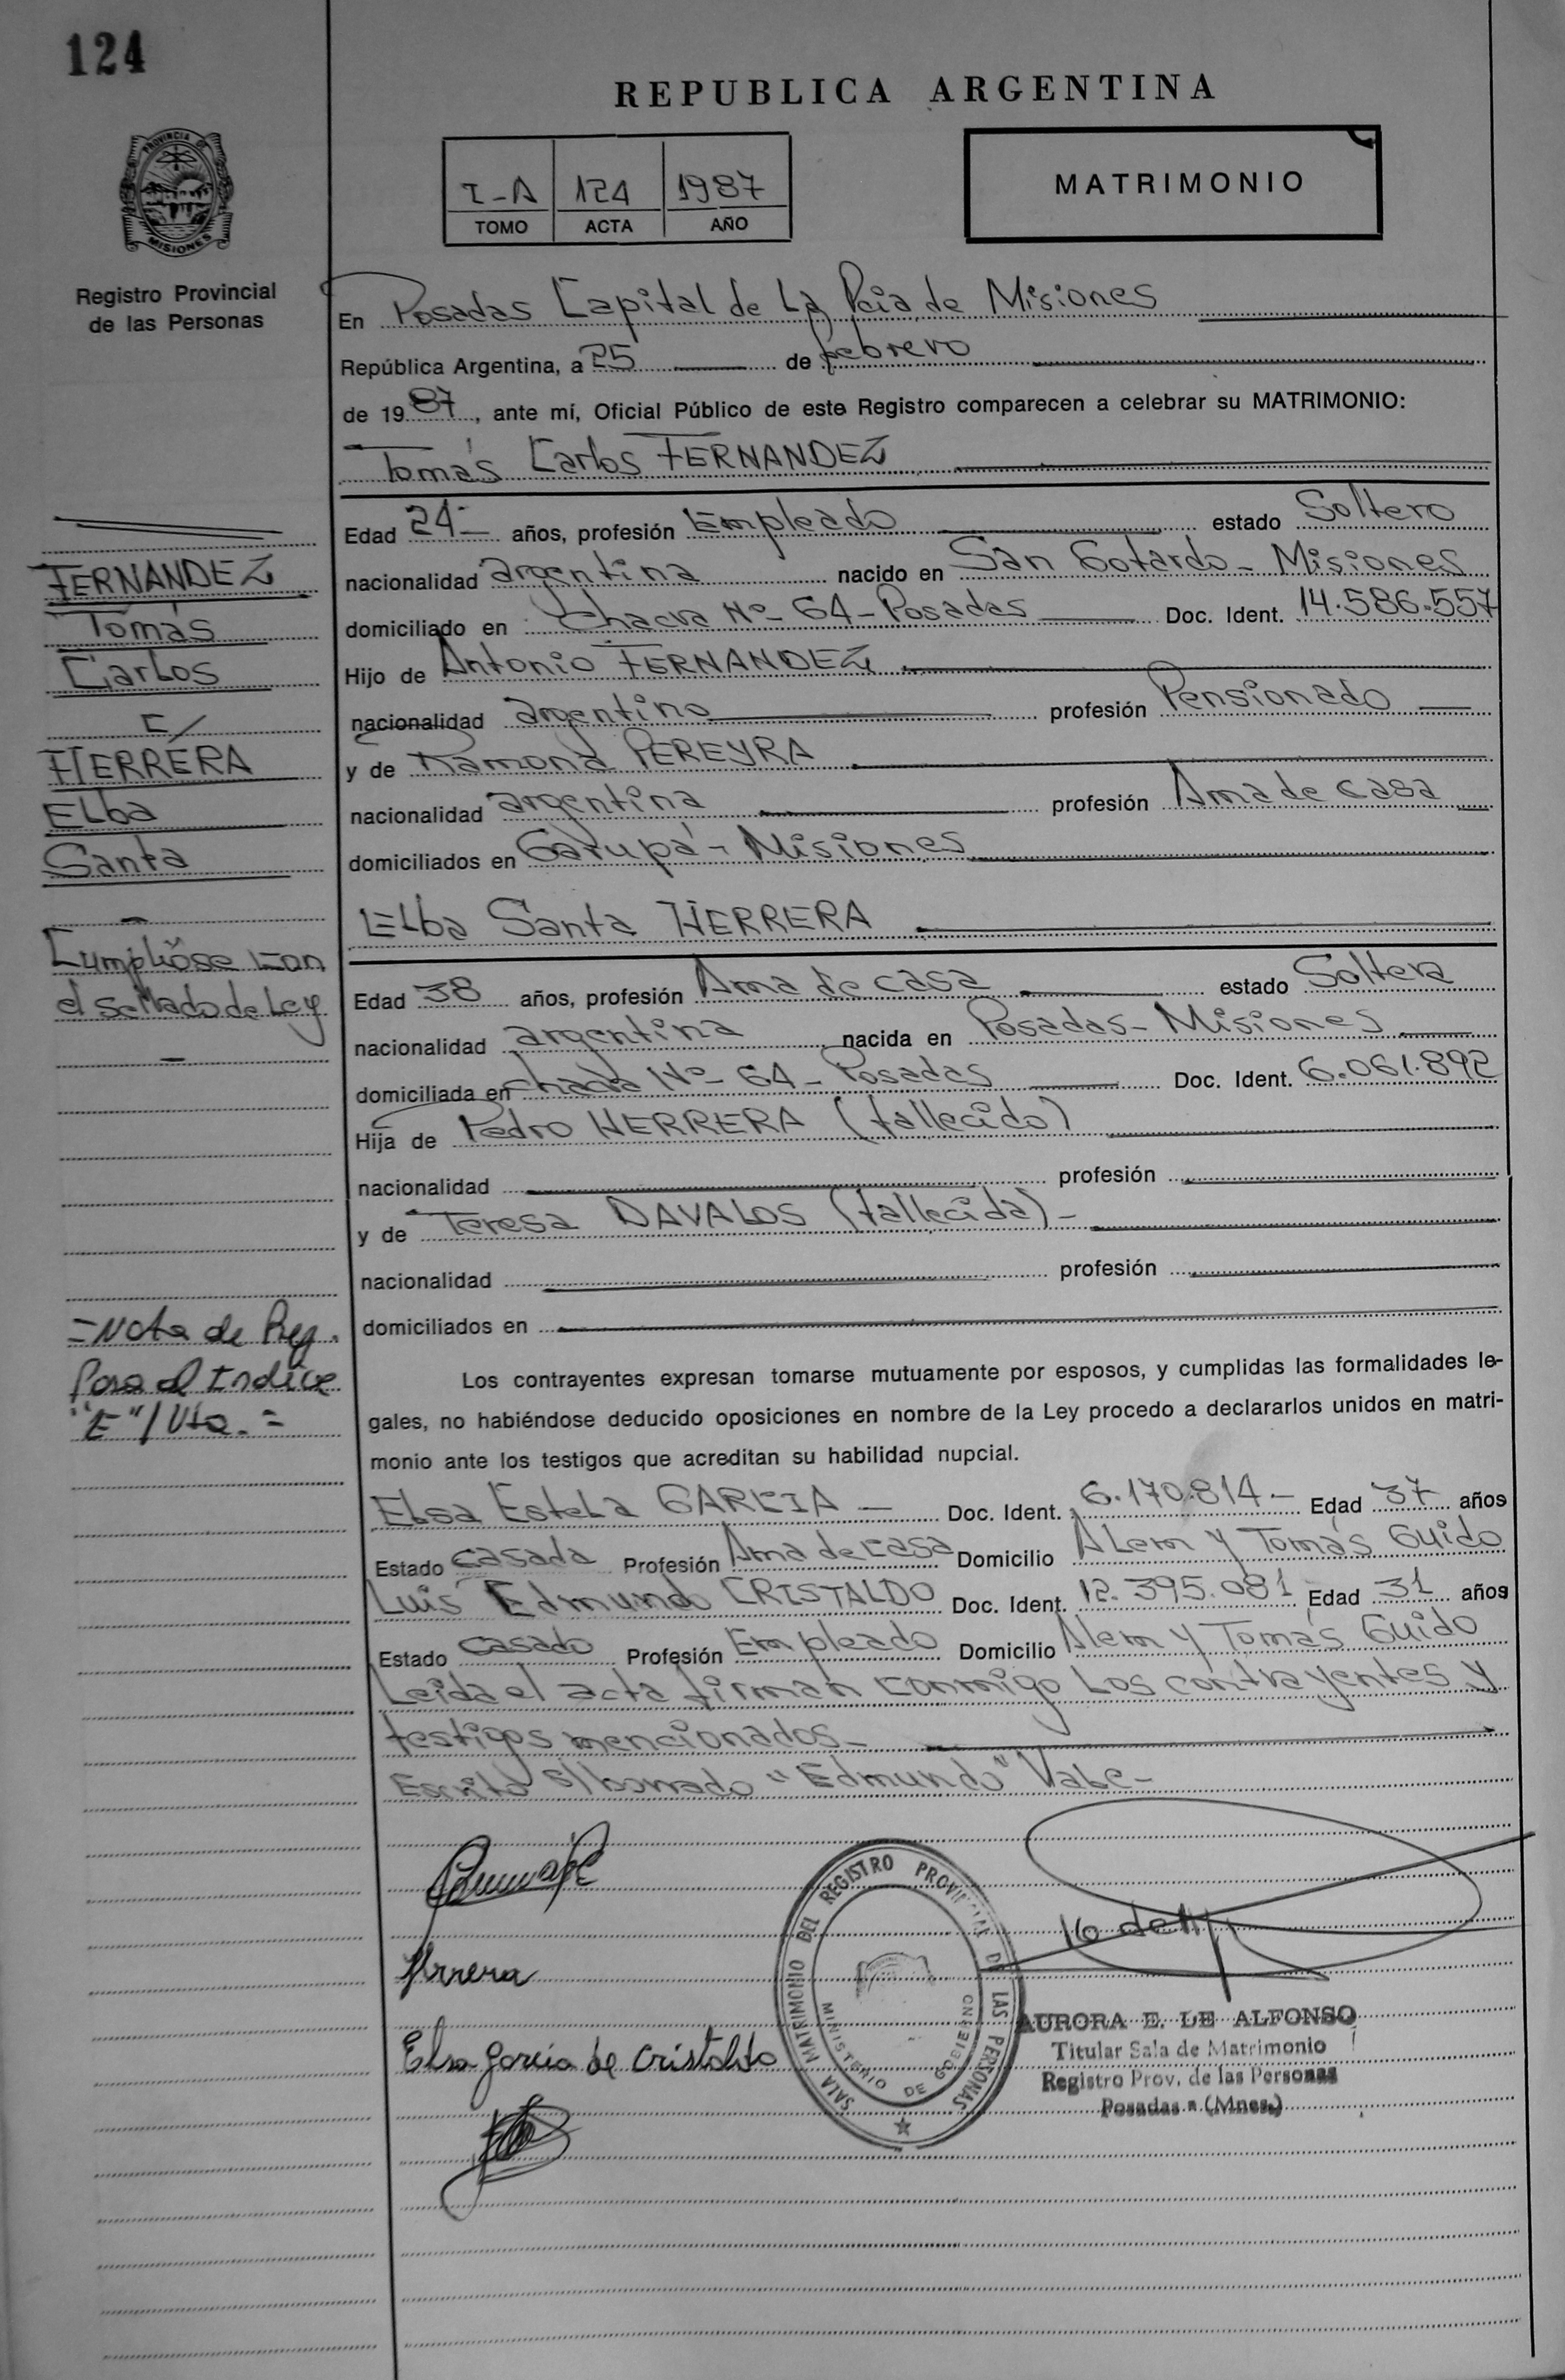 124
REPUBLICA ARGENTINA
PROVINCIA DE
MISIONES
Registro Provincial
de las Personas
I-A 124 1987
TOMO ACTA AÑO
MATRIMONIO
En Posadas Capital de La Pcia. de Misiones
República Argentina, a 25 de febrero
de 1987, ante mí, Oficial Público de este Registro comparecen a celebrar su MATRIMONIO:
Tomás Carlos FERNANDEZ
Edad 24- años, profesión Empleado estado Soltero
nacionalidad argentina nacido en San Gotardo - Misiones
domiciliado en Chacra Nº- 64 - Posadas Doc. Ident. 14.586.557
Hijo de Antonio FERNANDEZ
nacionalidad argentino profesión Pensionado
y de Ramona PEREYRA
nacionalidad argentina profesión Ama de casa
domiciliados en Garupá - Misiones
Elba Santa HERRERA
Edad 38 años, profesión Ama de casa estado Soltera
nacionalidad argentina nacida en Posadas - Misiones
domiciliada en chacra Nº- 64 - Posadas Doc. Ident. 6.061.892
Hija de Pedro HERRERA (fallecido)
nacionalidad profesión
y de Teresa DAVALOS (fallecida) -
nacionalidad profesión
domiciliados en
Los contrayentes expresan tomarse mutuamente por esposos, y cumplidas las formalidades le-
gales, no habiéndose deducido oposiciones en nombre de la Ley procedo a declararlos unidos en matri-
monio ante los testigos que acreditan su habilidad nupcial.
Elsa Estela GARCIA - Doc. Ident. 6.170.814 - Edad 37 años
Estado casada Profesión Ama de casa Domicilio Alem y Tomás Guido
Luis Edmundo CRISTALDO Doc. Ident. 12.395.081 Edad 31 años
Estado casado Profesión Empleado Domicilio Alem y Tomás Guido
Leída el acta firman conmigo Los contrayentes y
testigos mencionados -
Escrito s/borrado "Edmundo" Vale -
FERNANDEZ
Tomás
Carlos
C/
HERRERA
Elba
Santa
Cumplióse con
el sellado de Ley
=Nota de Reg.
Para el Indice
"E"/Vta.=
Herrera
Elsa Garcia de Cristaldo
SALA MATRIMONIO DEL REGISTRO PROVINCIAL DE LAS PERSONAS
MINISTERIO DE GOBIERNO
AURORA E. LE ALFONSO
Titular Sala de Matrimonio
Registro Prov. de las Personas
Posadas - (Mnes.)